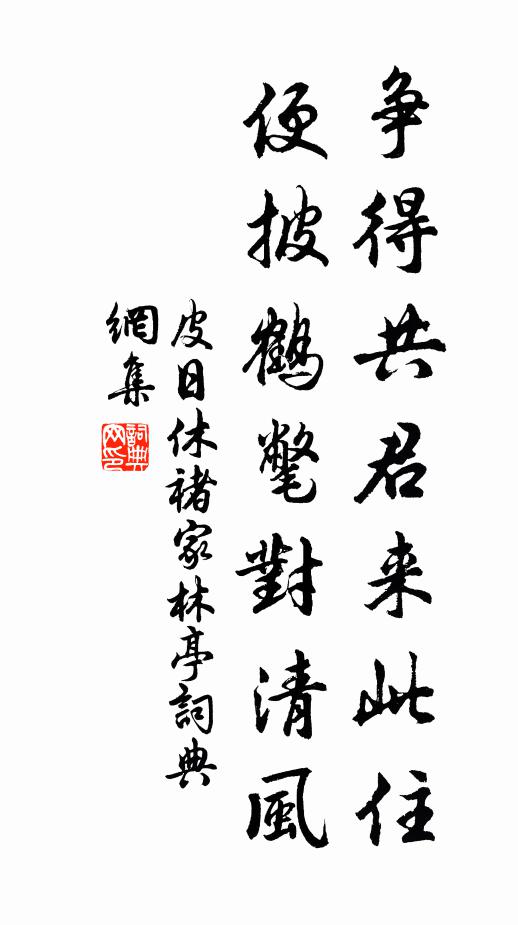 爭得共君来此住
便披鶴氅對清風
皮日休褚家林亭詞典
網集
詞典网印